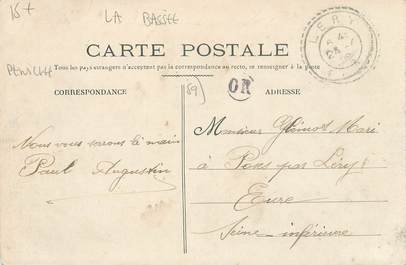 15+
LA BASSEE
PENICHE
CARTE POSTALE
Tous les pays étrangers n'acceptent pas la correspondance au recto, se renseigner à la poste
LERY
CORRESPONDANCE
89
OR
ADRESSE
Nous vous serrons la main
Paul Augustin
Monsieur Mari
à Pons par Léry
Eure
Seine-inférieure